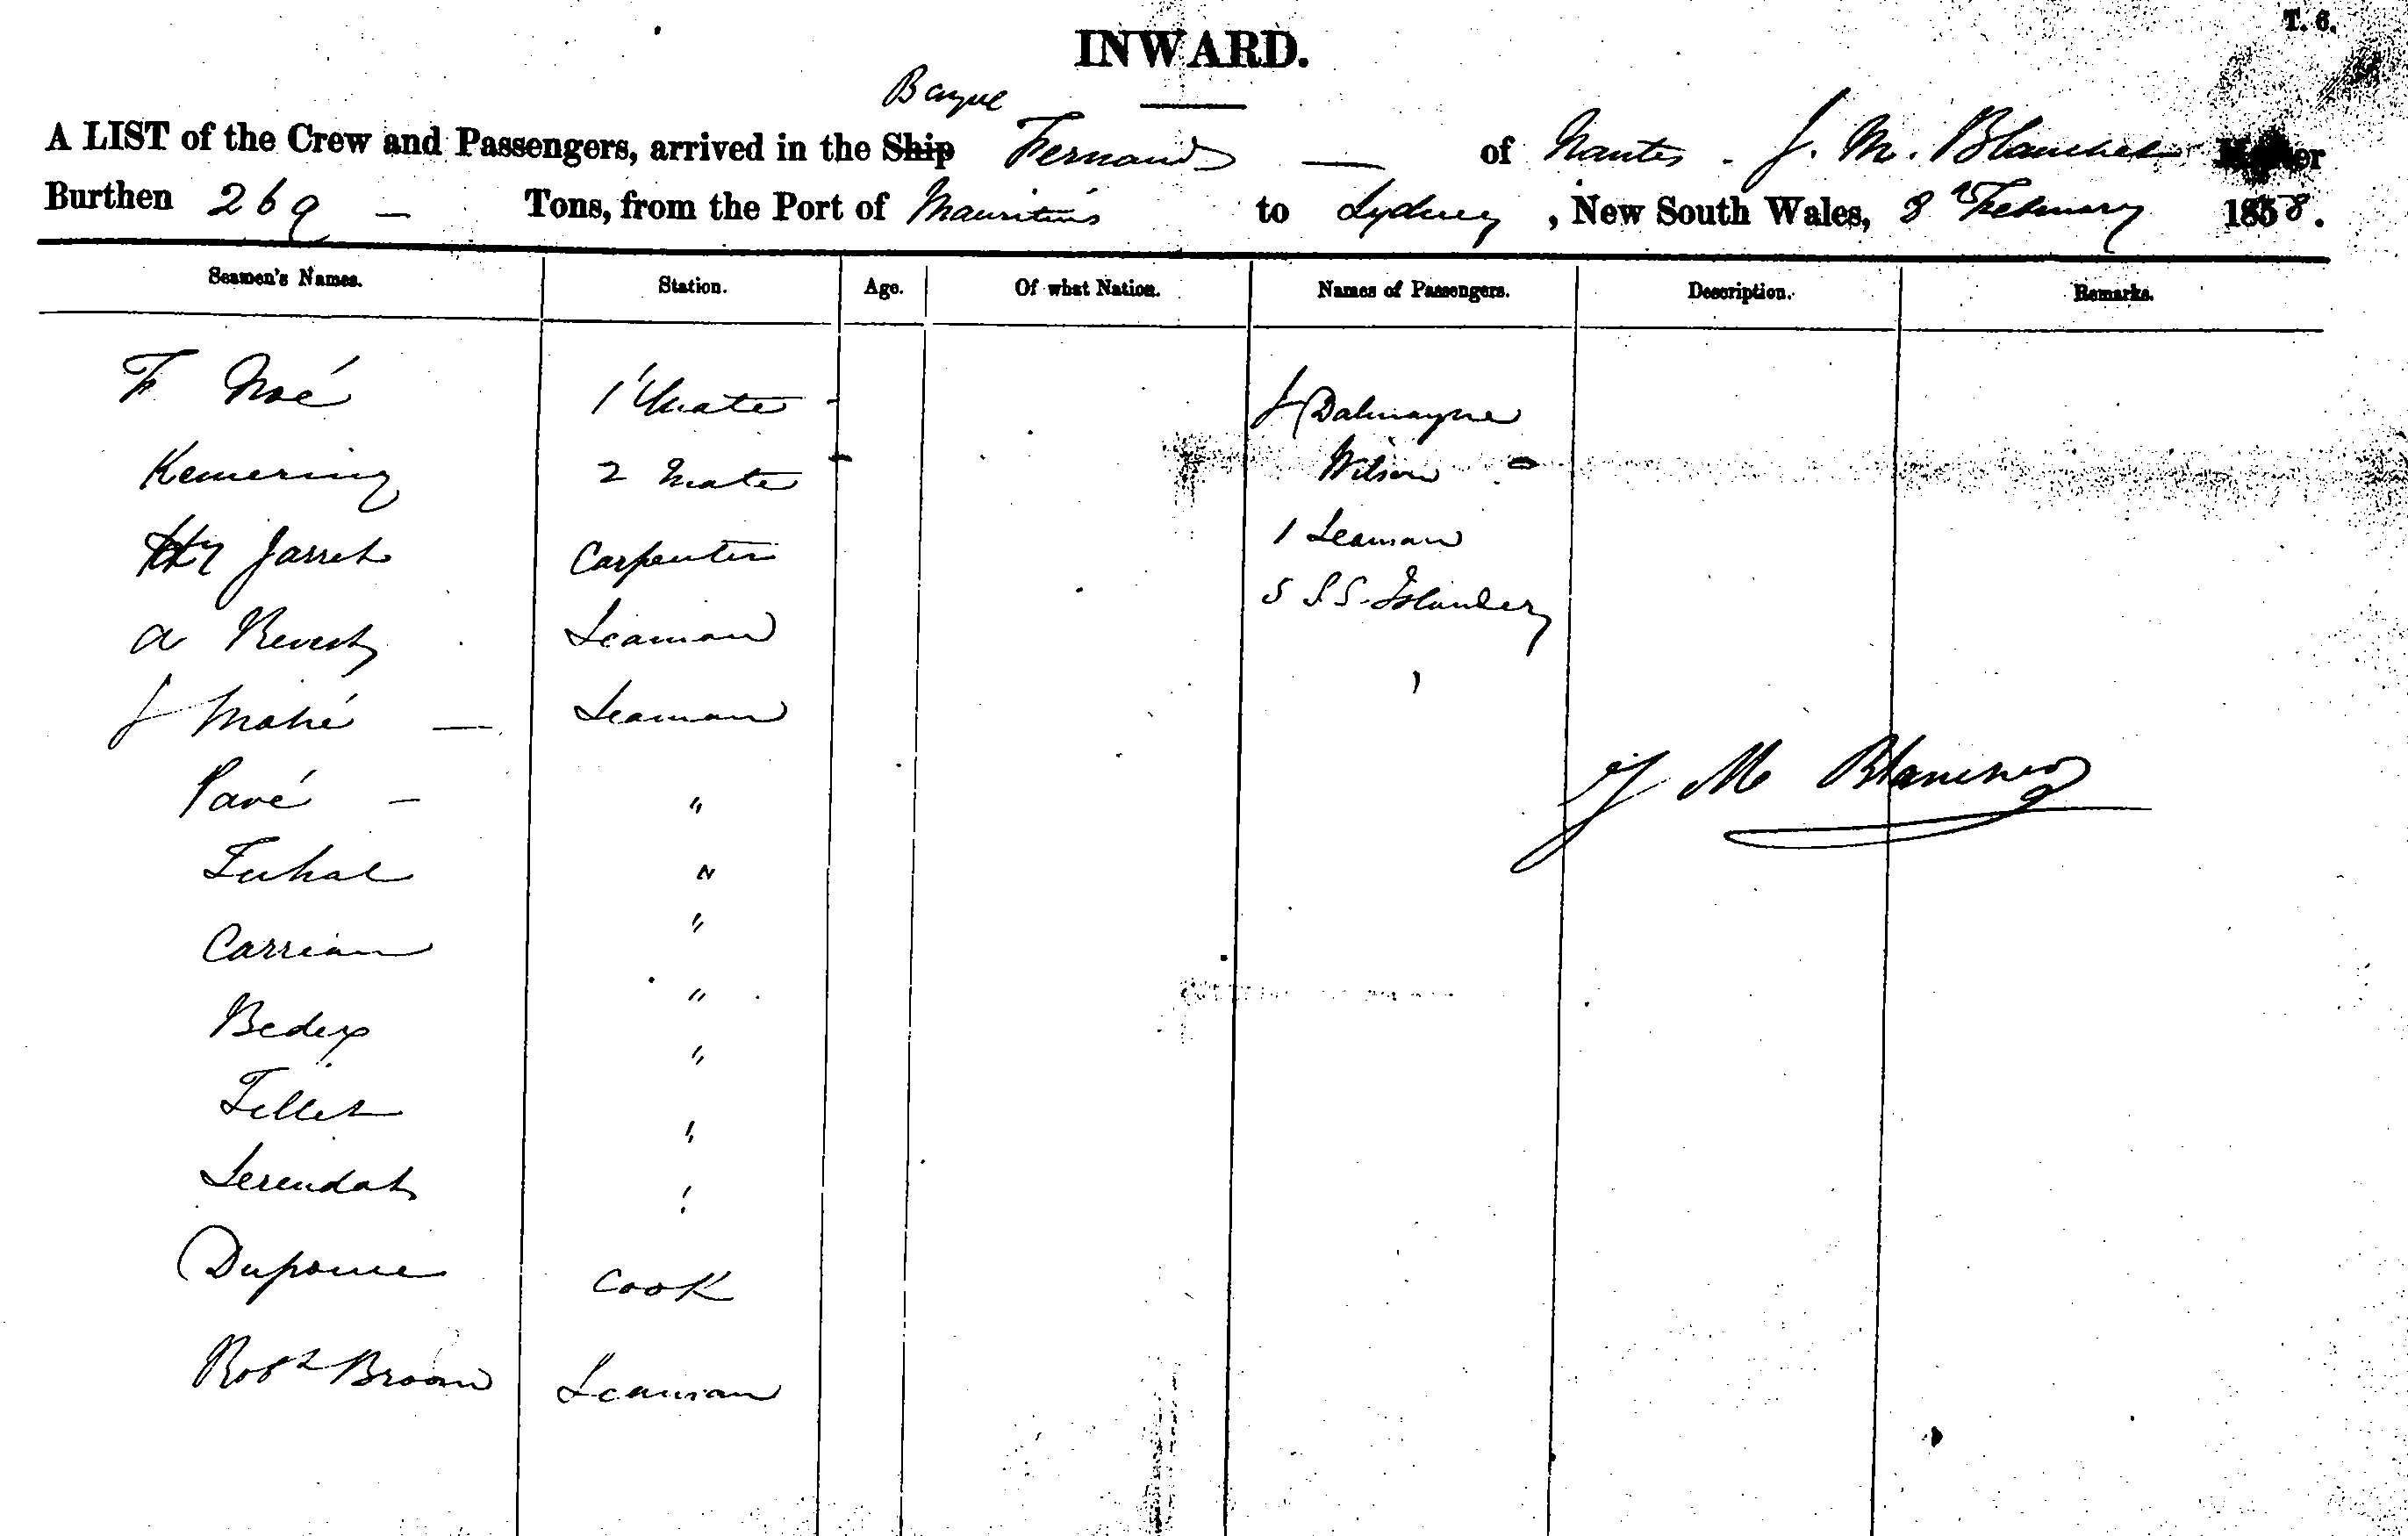 T. 6.
INWARD.
Barque
A LIST of the Crew and Passengers, arrived in the Ship Fernand — of Nantes. J. M. Blanchet Master
Burthen 269 — Tons, from the Port of Mauritius to Sydney, New South Wales, 8th February 1858.
Seamen's Names. Station. Age. Of what Nation. Names of Passengers. Description. Remarks.
F Noé 1 Mate J Dalmayne
Kemering 2 Mate Wilson
Hy Jarret Carpenter 1 Seaman
A Revest Seaman 5 S S. Islanders
J Mahé — Seaman
Pavé — "
J M Blanchet
"
Carrian "
Bedex "
Tillet "
"
Cook
Robt Broom Seaman